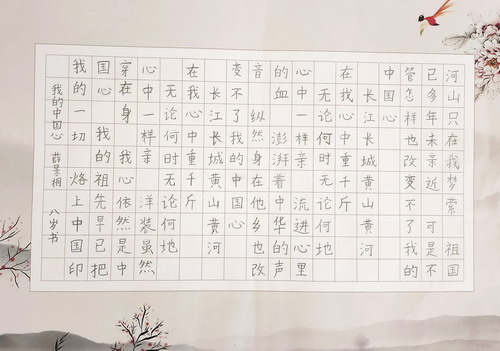 河山只在我梦萦 祖国
已多年未亲近 可是不
管怎样也改变不了我的
中国心
长江长城黄山黄河
在我心中重千斤
无论何时无论何地
心中一样亲 流进心里
的血 澎湃着中华的声
音 纵然身在他乡也改
变不了我的中国心
长江长城黄山黄河
在我心中重千斤
无论何时无论何地
心中一样亲 洋装虽然
穿在身 我心依然是中
国心 我的祖先早已把
我的一切 烙上中国印
我的中国心 薛景桐 八岁书